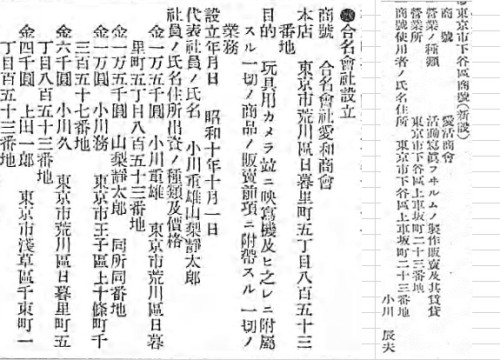 東京市下谷區商號(新設)
商號 愛活商會
營業ノ種類 活動寫眞フヰルムノ製作販賣及其賃貸
營業所 東京市下谷區上車坂町二十三番地
商號使用者ノ氏名住所 東京市下谷區上車坂町二十三番地
小川 辰夫
合名會社設立
商號 合名會社愛和商會
本店 東京市荒川區日暮里町五丁目八百五十三
番地
目的 玩具用カメラ竝ニ映寫機及ヒ之レニ附屬
スル一切ノ商品ノ販賣前項ニ附帶スル一切ノ
業務
設立年月日 昭和十年十月一日
代表社員ノ氏名 小川重雄山梨靜太郎
社員ノ氏名住所出資ノ種類及價格
金一万五千圓 小川重雄 東京市荒川區日暮
里町五丁目八百五十三番地
金一万五千圓 山梨靜太郎 同所同番地
金一万圓 小川務 東京市王子區上十條町千
三百五十七番地
金六千圓 小川久 東京市荒川區日暮里町五
丁目八百五十三番地
金四千圓 上田一郎 東京市淺草區千束町一
丁目百五十三番地